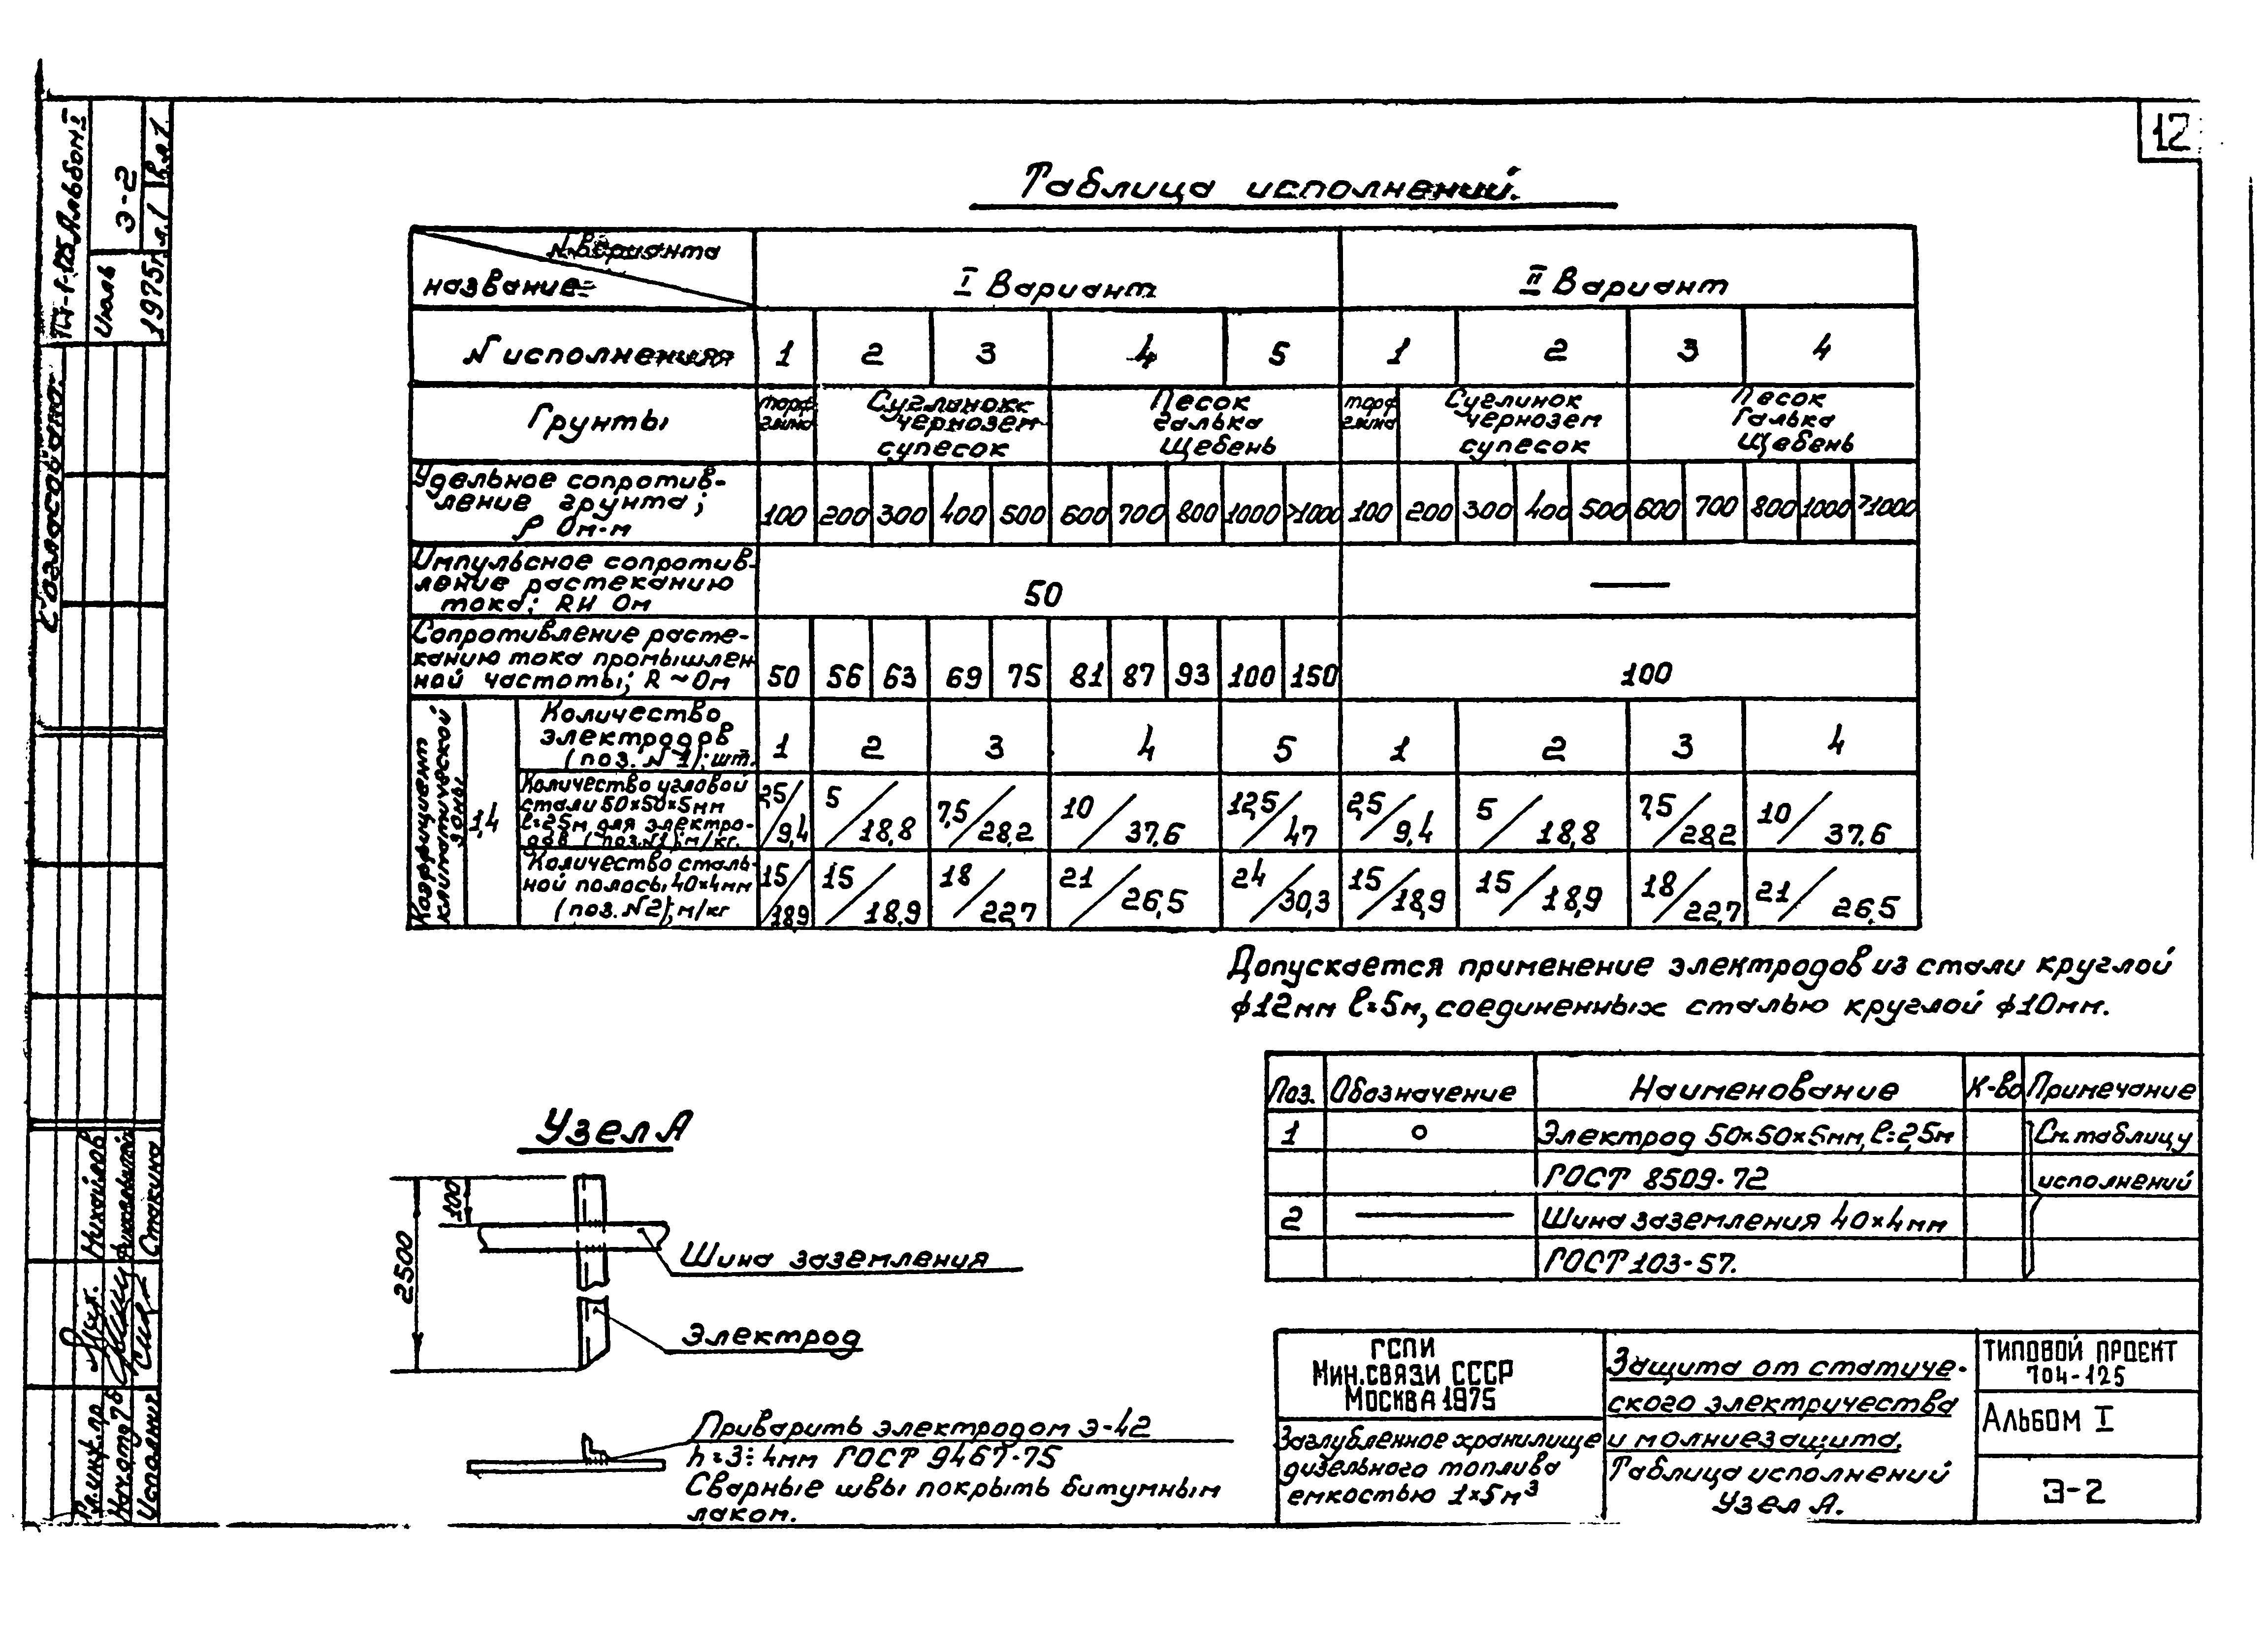 12
Таблица исполнений.
N варианта
название
I Вариант
II Вариант
N исполнения 1 2 3 4 5 1 2 3 4
Грунты
торф
глина
Суглинок
чернозем
супесок
Песок
галька
Щебень
торф
глина
Суглинок
чернозем
супесок
Песок
Галька
Щебень
Удельное сопротив-
ление грунта;
ρ Ом·м
100 200 300 400 500 600 700 800 1000 >1000 100 200 300 400 500 600 700 800 1000 >1000
Импульсное сопротив-
ление растеканию
тока; RИ Ом
50 —
Сопротивление расте-
канию тока промышлен
ной частоты; R~Ом
50 56 63 69 75 81 87 93 100 150 100
Коэффициент
климатической
зоны
1,4
Количество
электродов
(поз. N 1); шт.
1 2 3 4 5 1 2 3 4
Количество угловой
стали 50×50×5мм
ℓ=2,5м для электро-
дов (поз.N1); м/кг.
2,5/9,4 5/18,8 7,5/28,2 10/37,6 12,5/47 2,5/9,4 5/18,8 7,5/28,2 10/37,6
Количество сталь-
ной полосы 40×4мм
(поз. N2); м/кг
15/18,9 15/18,9 18/22,7 21/26,5 24/30,3 15/18,9 15/18,9 18/22,7 21/26,5
Допускается применение электродов из стали круглой
ϕ12мм ℓ=5м, соединенных сталью круглой ϕ10мм.
Поз. Обозначение Наименование К-во Примечание
1 Электрод 50×50×5мм, ℓ=2,5м См. таблицу
ГОСТ 8509-72 исполнений
2 Шина заземления 40×4мм
ГОСТ 103-57.
Узел А
100
2500
Шина заземления
Электрод
Приварить электродом Э-42
h=3÷4мм ГОСТ 9467-75
Сварные швы покрыть битумным
лаком.
ГСПИ
Мин.связи СССР
Москва 1975
Заглубленное хранилище
дизельного топлива
емкостью 1×5м³
Защита от статиче-
ского электричества
и молниезащита.
Таблица исполнений
Узел А.
Типовой проект
704-125
Альбом I
Э-2
Альбом I
Июль
1975г
Э-2
л.1
Согласовано:
Гл.инж.пр.
Михайлов
Исполнит.
Стакина